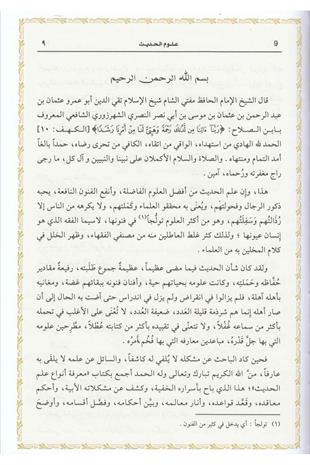 ٩ علوم الحديث 9
بسم الله الرحمن الرحيم
قال الشيخ الإمام الحافظ مفتي الشام شيخ الإسلام تقي الدين أبو عمرو عثمان بن
عبد الرحمن بن عثمان بن موسى بن أبي نصر النصري الشهرزوري الشافعي المعروف
بابن الصلاح: ﴿رَبَّنَا ءَاتِنَا مِن لَّدُنكَ رَحْمَةً وَهَيِّئْ لَنَا مِنْ أَمْرِنَا رَشَدًا﴾ [الكهف: ١٠]
الحمد لله الهادي من استهداه، الواقي من اتقاه، الكافي من تحرى رضاه، حمداً بالغاً
أمد التمام ومنتهاه. والصلاة والسلام الأكملان على نبينا والنبيين وآل كل، ما رجى
راج مغفرته ورحماه، آمين.
هذا، وإن علم الحديث من أفضل العلوم الفاضلة، وأنفع الفنون النافعة، يحبه
ذكور الرجال وفحولتهم، ويُعنَى به محققو العلماء وكَمَلتهم، ولا يكرهه من الناس إلا
رُذَالتُهم وسَفِلَتُهم، وهو من أكثر العلوم تولُّجاً(١) في فنونها، لاسيما الفقه الذي هو
إنسان عيونها؛ ولذلك كثر غلط العاطلين منه من مصنفي الفقهاء، وظهر الخلل في
كلام المخلين به من العلماء.
ولقد كان شأن الحديث فيما مضى عظيماً، عظيمةً جموع طَلَبته، رفيعةً مقادير
حُفَّاظه وحَمَلته، وكانت علومه بحياتهم حية، وأفنان فنونه ببقائهم غضة، ومغانيه
بأهله آهلة، فلم يزالوا في انقراض ولم يزل في اندراس حتى آضت به الحال إلى أن
صار أهله إنما هم شرذمة قليلة العَدد، ضعيفة العُدد، لا تُعْنَى على الأغلب في تحمله
بأكثر من سماعه غُفْلاً، ولا تتعنَّى في تقييده بأكثر من كتابته عُطْلاً، مطَّرحين علومه
التي بها جلّ قَدْرُه، مباعدين معارفه التي بها فُخِّم أمرُه.
فحين كاد الباحث عن مشكله لا يُلفي له كاشفاً، والسائل عن علمه لا يلقى به
عارفاً، منَّ الله الكريم تبارك وتعالى وله الحمد أجمع بكتاب «معرفة أنواع علم
الحديث»؛ هذا الذي باح بأسراره الخفية، وكشف عن مشكلاته الأبية، وأحكم
معاقده، وقَعَّد قواعده، وأنار معالمه، وبيَّن أحكامه، وفصَّل أقسامه، وأوضح
(١) تولجاً: أي يدخل في كثير من الفنون.